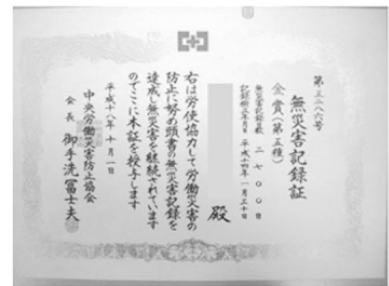 第三二八六号
無災害記録証
金賞(第五種)
無災害記録日数 二七〇〇日
記録樹立年月日 平成十四年一月三十日
殿
右は労使協力して労働災害の
防止に努め頭書の無災害記録を
達成し無災害を継続されています
のでここに本証を授与します
平成十八年十月一日
中央労働災害防止協会
会長 御手洗冨士夫